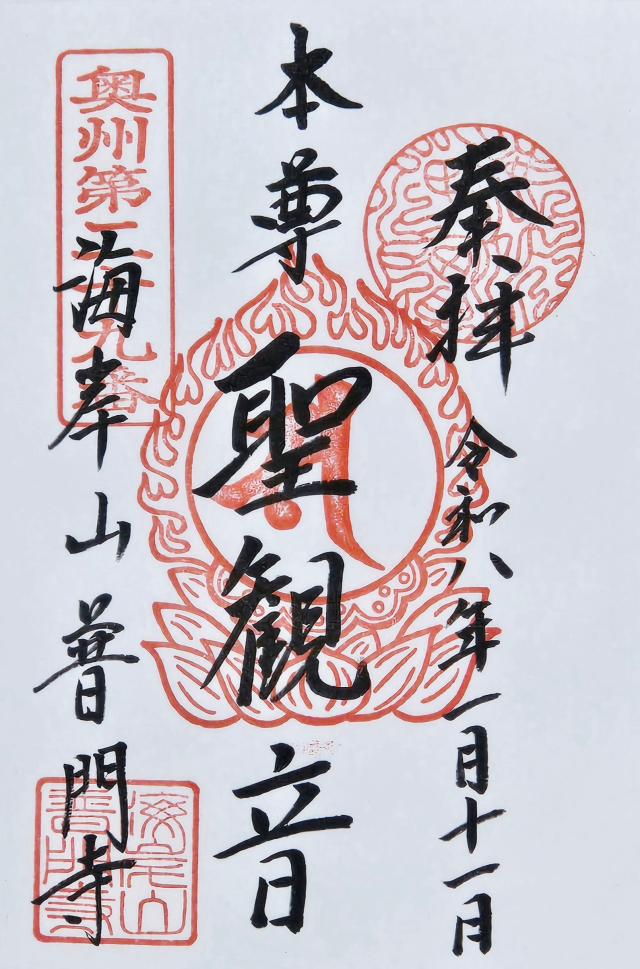 奉拝 令和八年一月十一日
本尊 聖観音
奥州第二十九番
海岸山 普門寺
海岸山
普門寺